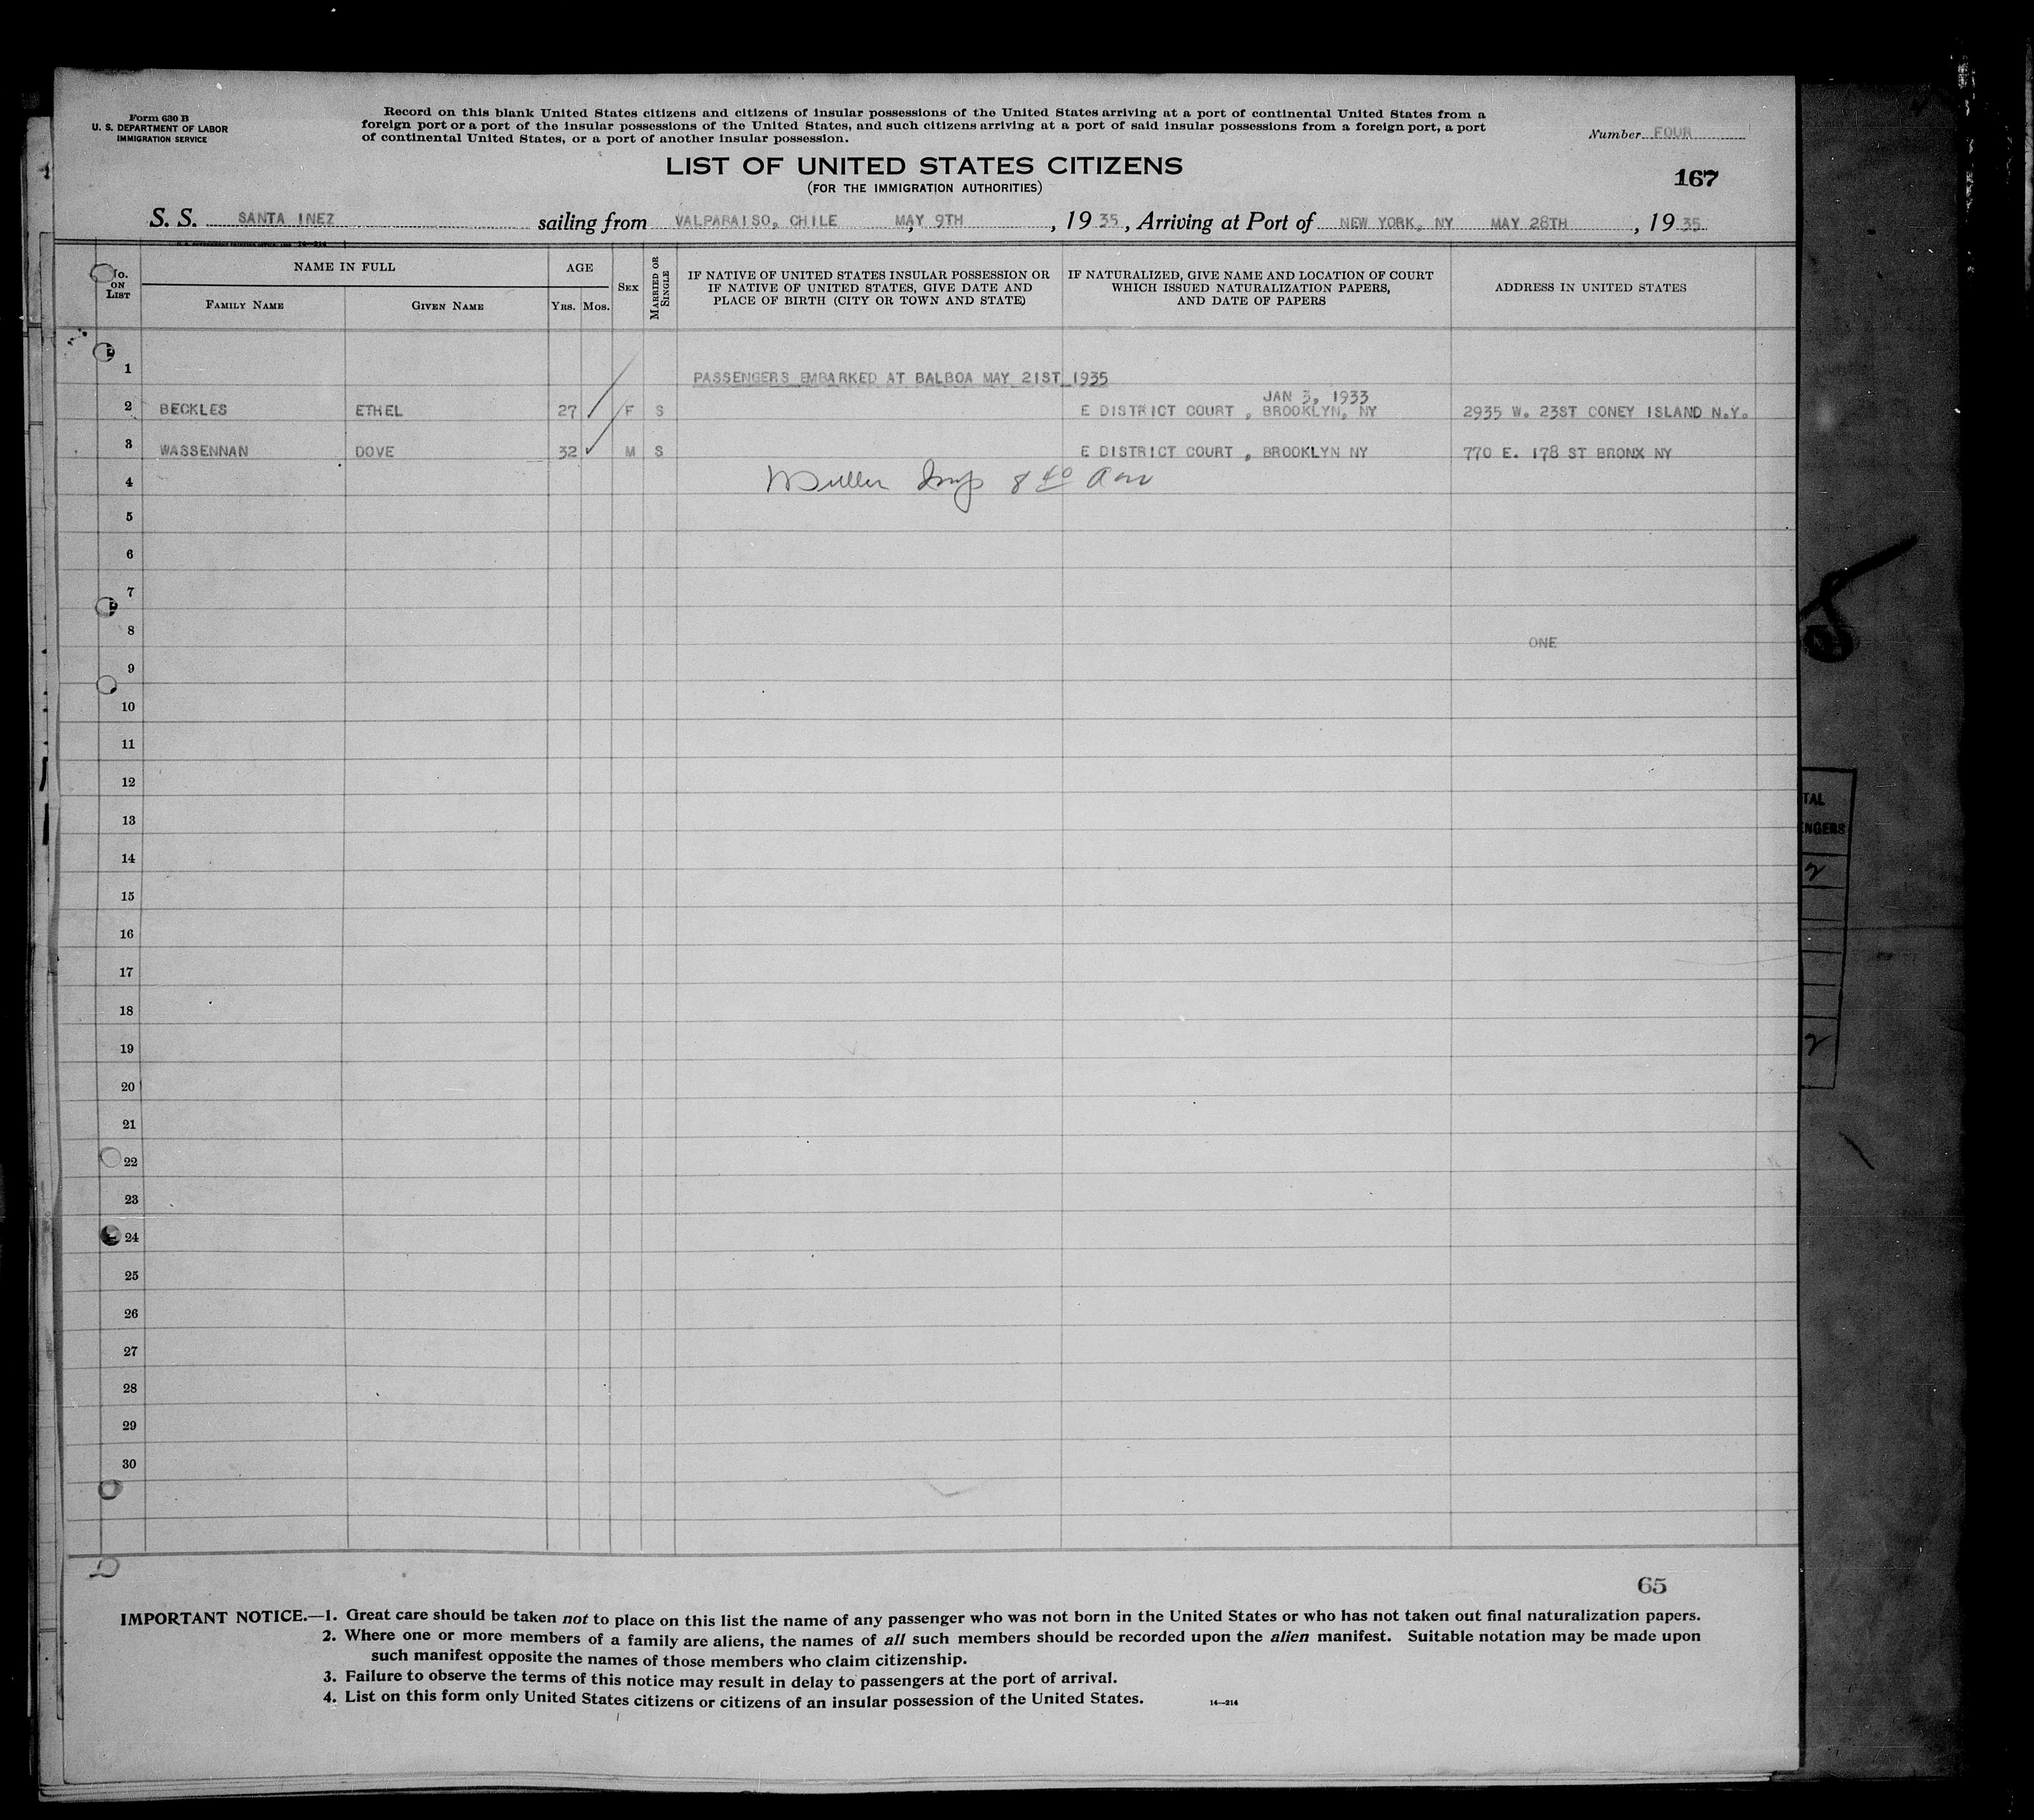 Form 630 B
U. S. DEPARTMENT OF LABOR
IMMIGRATION SERVICE
Record on this blank United States citizens and citizens of insular possessions of the United States arriving at a port of continental United States from a
foreign port or a port of the insular possessions of the United States, and such citizens arriving at a port of said insular possessions from a foreign port, a port
of continental United States, or a port of another insular possession.
Number FOUR
LIST OF UNITED STATES CITIZENS
(FOR THE IMMIGRATION AUTHORITIES)
167
S. S. SANTA INEZ sailing from VALPARAISO, CHILE MAY 9TH, 1935, Arriving at Port of NEW YORK, NY MAY 28TH, 1935
14—214
No. ON LIST
NAME IN FULL
FAMILY NAME
GIVEN NAME
AGE
YRS. MOS.
SEX
MARRIED OR SINGLE
IF NATIVE OF UNITED STATES INSULAR POSSESSION OR
IF NATIVE OF UNITED STATES, GIVE DATE AND
PLACE OF BIRTH (CITY OR TOWN AND STATE)
IF NATURALIZED, GIVE NAME AND LOCATION OF COURT
WHICH ISSUED NATURALIZATION PAPERS,
AND DATE OF PAPERS
ADDRESS IN UNITED STATES
1 PASSENGERS EMBARKED AT BALBOA MAY 21ST 1935
JAN 3, 1933
2 BECKLES ETHEL 27 F S E DISTRICT COURT , BROOKLYN, NY 2935 W. 23ST CONEY ISLAND N.Y.
3 WASSENNAN DOVE 32 M S E DISTRICT COURT , BROOKLYN NY 770 E. 178 ST BRONX NY
4 Muller Insp 8 40 am
5
6
7
8 ONE
9
10
11
12
13
14
15
16
17
18
19
20
21
22
23
24
25
26
27
28
29
30
TAL
ENGERS
2
2
65
IMPORTANT NOTICE.—1. Great care should be taken not to place on this list the name of any passenger who was not born in the United States or who has not taken out final naturalization papers.
2. Where one or more members of a family are aliens, the names of all such members should be recorded upon the alien manifest. Suitable notation may be made upon
such manifest opposite the names of those members who claim citizenship.
3. Failure to observe the terms of this notice may result in delay to passengers at the port of arrival.
4. List on this form only United States citizens or citizens of an insular possession of the United States. 14—214